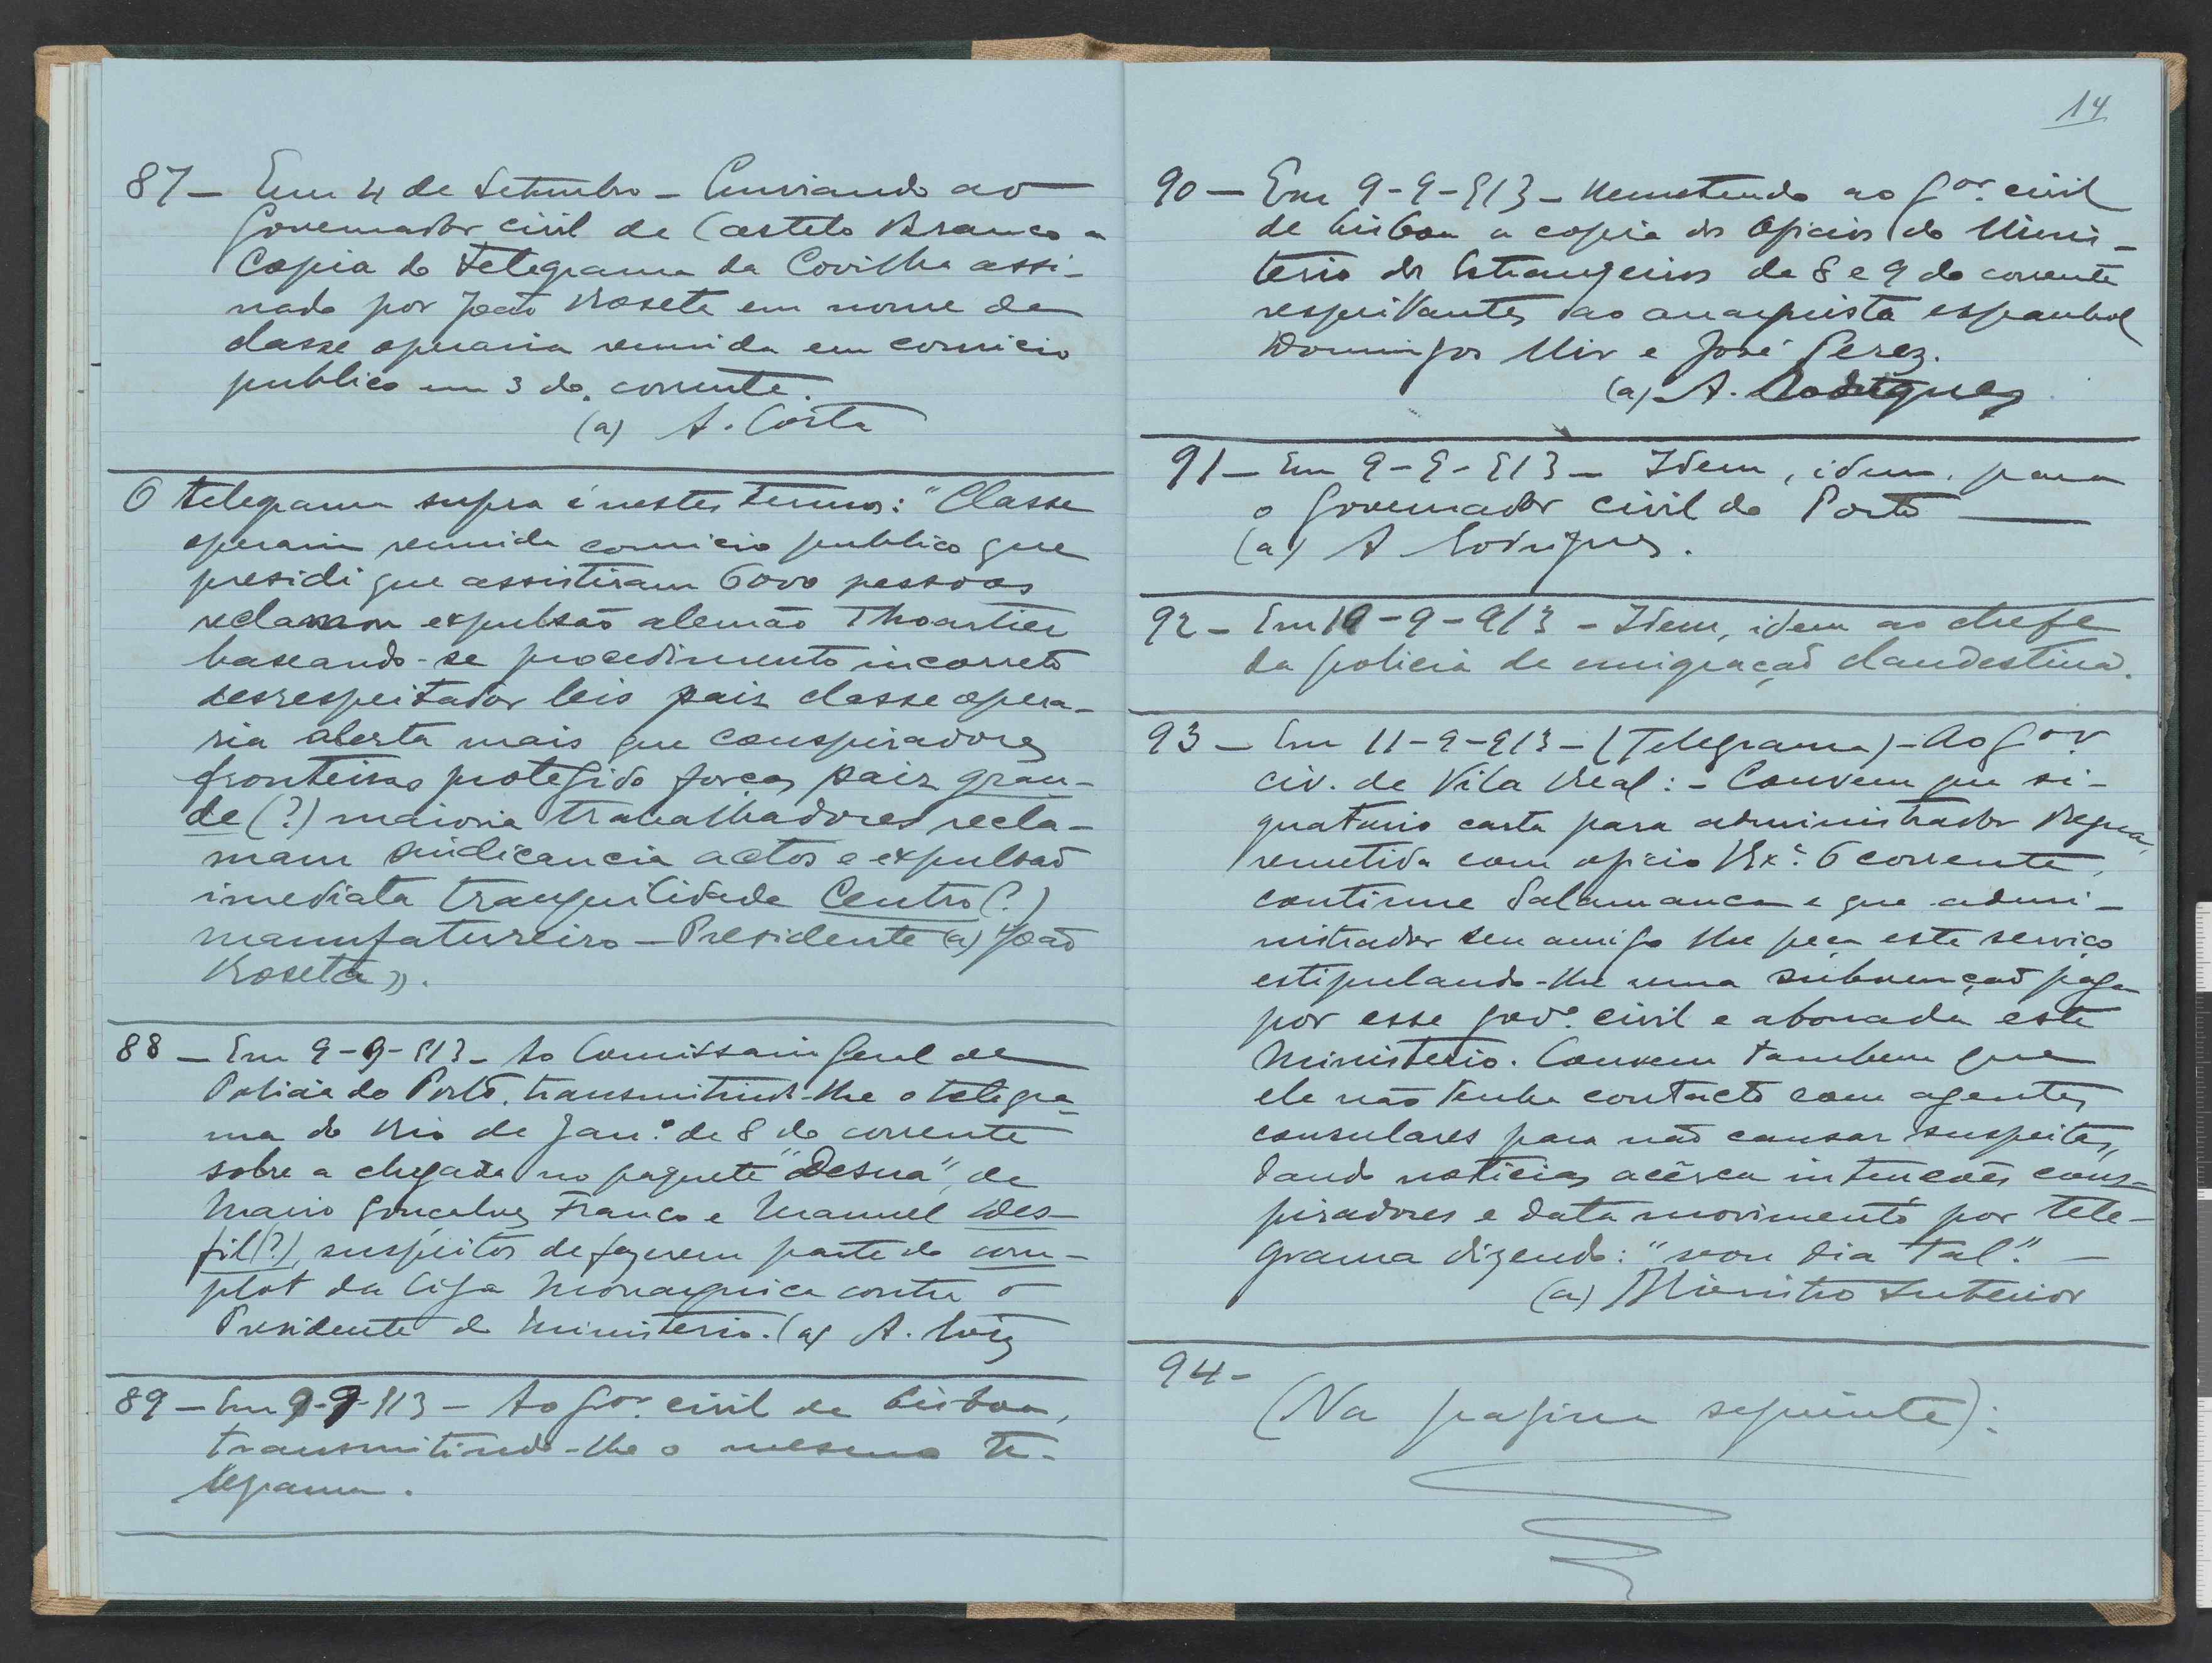 87 — Em 4 de Setembro — Enviando ao
Governador civil de Castelo Branco a
Copia do telegrama da Covilha assi-
nado por João Roseta em nome da
classe operaria reunida em comicio
publico em 3 do corrente.
(a) A. Costa
O telegrama supra é nestes termos: "Classe
operaria reunida comicio publico que
presidi que assistiram 6000 pessoas
reclamam expulsão alemão Thoartier
baseando-se procedimento incorreto
desrespeitador leis paiz classe opera-
ria alerta mais que conspiradores
fronteiras protegido forças paiz gran-
de (?) maioria trabalhadores recla-
mam sindicancia actos e expulsão
imediata tranquilidade Centro (?)
manufatureiro — Presidente (a) João
Roseta».
88 — Em 9-9-913 — Ao Comissario Geral de
Policia do Porto, transmitindo-lhe o telegra-
ma do Rio de Jan.º de 8 do corrente
sobre a chegada no paquete "Desna", de
Mario Gonçalves Franco e Manuel Des-
fil (?), suspeitos de fazerem parte do com-
plot da Liga Monarquica contra o
Presidente do Ministerio. (a) A. Luiz
89 — Em 9-9-913 — Ao Gor. civil de Lisboa,
transmitindo-lhe o mesmo te-
legrama.
14
90 — Em 9-9-913 — Remetendo ao Gor. civil
de Lisboa a copia dos oficios do Minis-
terio dos Estrangeiros de 8 e 9 do corrente
respeitantes ao anarquista espanhol
Domingos Mir e José Perez.
(a) A. Rodrigues
91 — Em 9-9-913 — Idem, idem, para
o Governador civil do Porto —
(a) A Rodrigues.
92 — Em 10-9-913 — Idem, idem ao chefe
da policia de emigração clandestina.
93 — Em 11-9-913 — (Telegrama) — Ao Gor.
civ. de Vila Real: — Convem que si-
gnatario carta para administrador Regua,
remetida com oficio V. Ex.ª 6 corrente,
continue Salamanca e que admi-
nistrador seu amigo lhe peça este serviço
estipulando-lhe uma subvenção paga
por esse gov.º civil e abonada este
Ministerio. Convem tambem que
ele não tenha contacto com agentes
consulares para não causar suspeitas,
dando noticias acêrca intenções cons-
piradores e data movimento por tele-
grama dizendo: "vou dia tal." —
(a) Ministro Interior
94 —
(Na pagina seguinte):